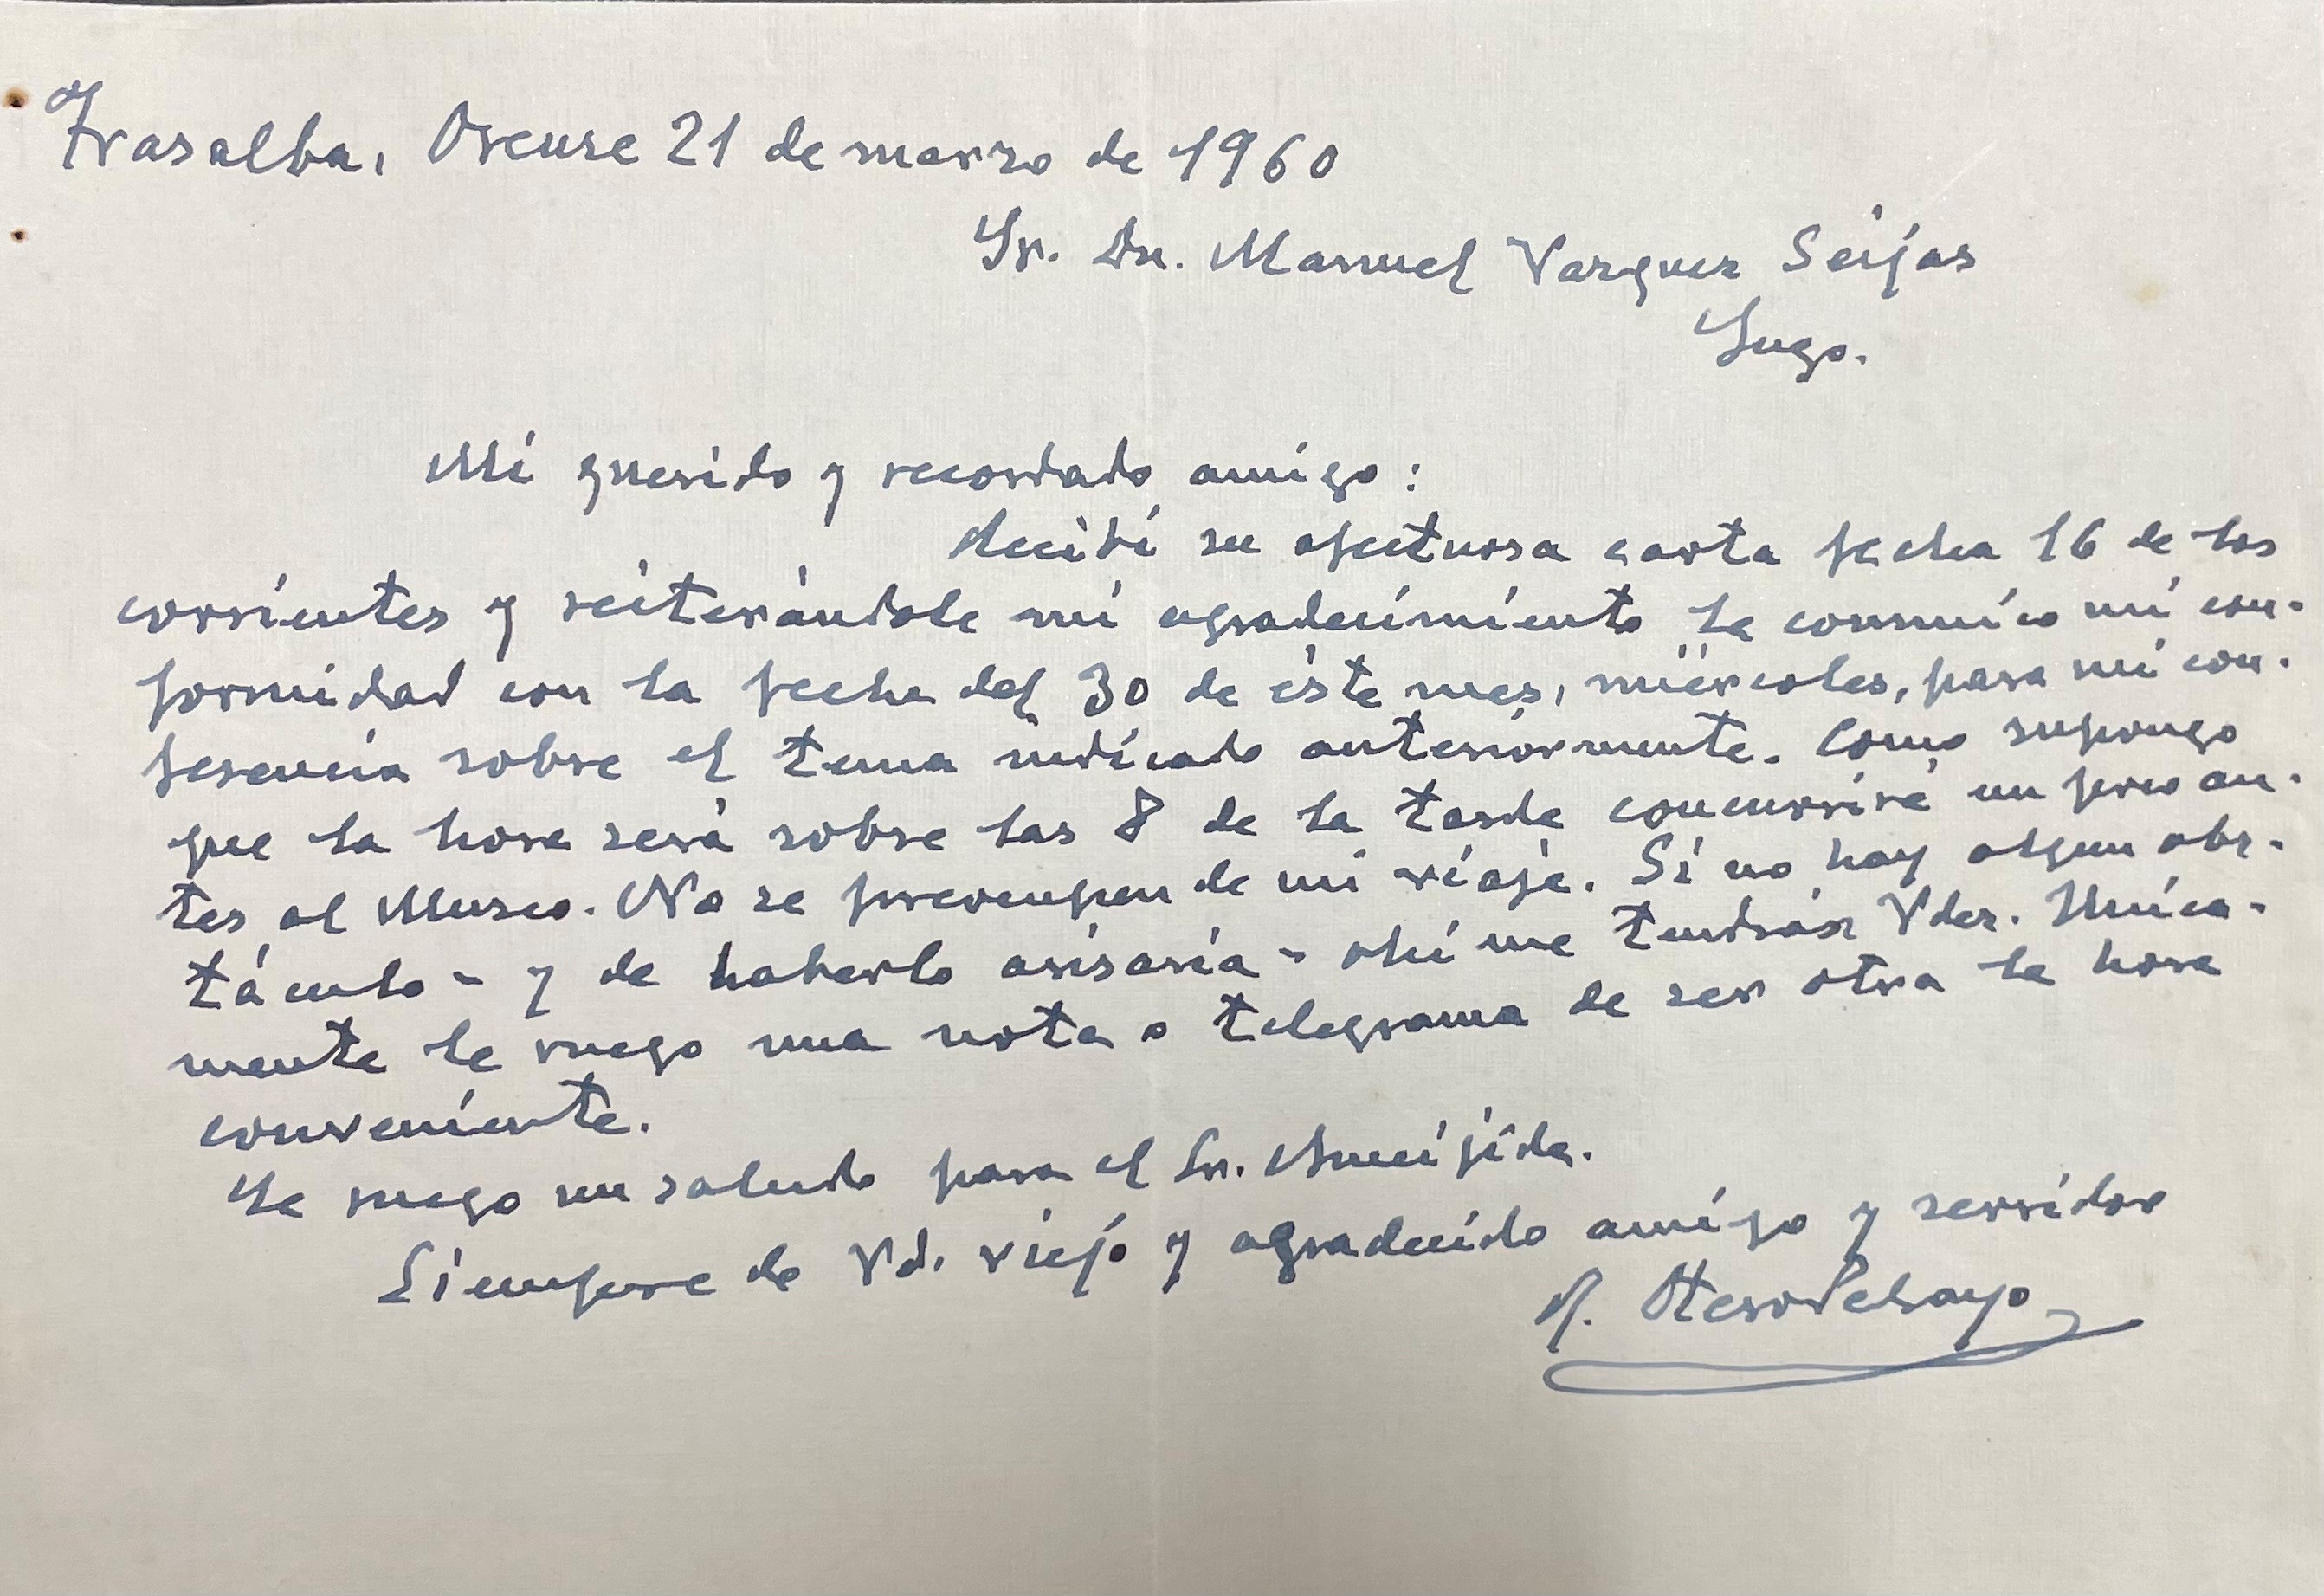 Trasalba, Orense 21 de marzo de 1960
Sr. Dn. Manuel Vazquez Seijas
Lugo.
Mi querido y recordado amigo:
Recibí su afectuosa carta fecha 16 de los
corrientes y reiterándole mi agradecimiento le comunico mi con-
formidad con la fecha del 30 de éste mes, miércoles, para mi con-
ferencia sobre el tema indicado anteriormente. Como supongo
que la hora será sobre las 8 de la tarde concurriré un poco an-
tes al Museo. No se preocupen de mi viaje. Si no hay algun obs-
táculo - y de haberlo avisaría - ahí me tendrán Vdes. Única-
mente le ruego una nota o telegrama de ser otra la hora
conveniente.
Le ruego un saludo para el Sr.
Siempre de Vd. viejo y agradecido amigo y servidor
R. Otero Pedrayo